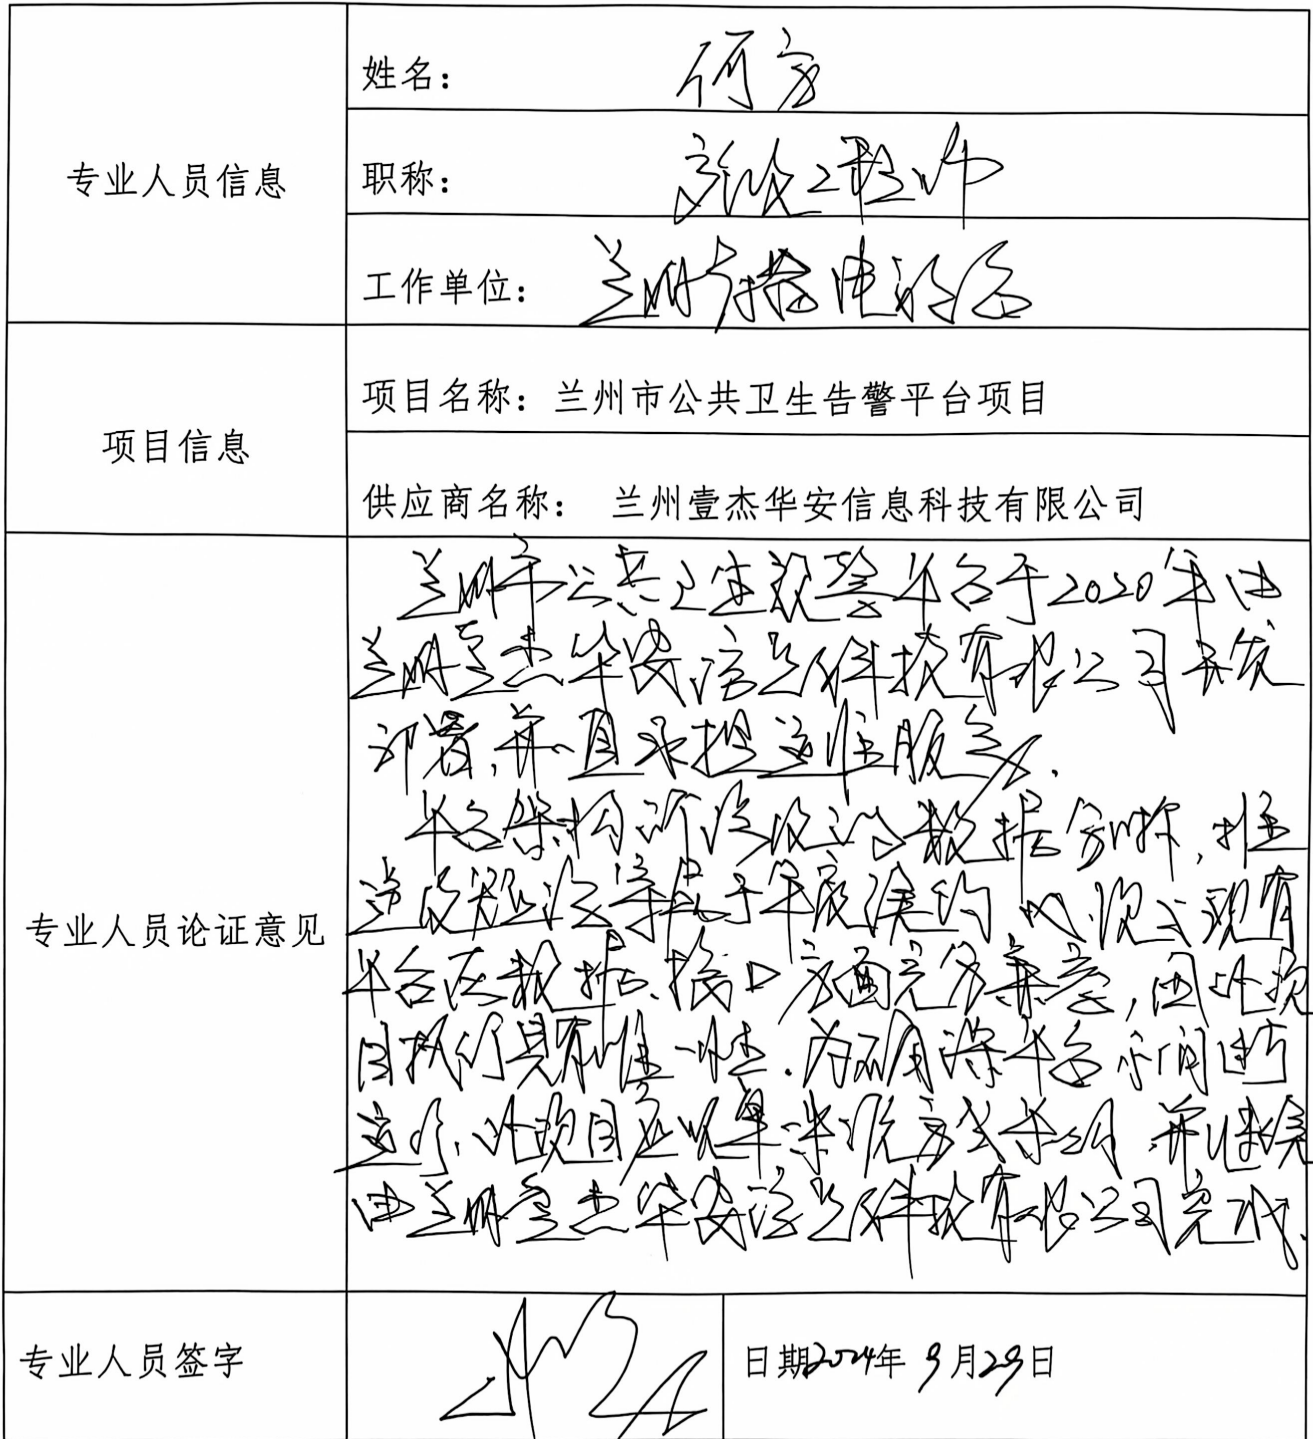 专业人员信息
姓名：何方
职称：高级工程师
工作单位：兰州广播电视台
项目信息
项目名称：兰州市公共卫生告警平台项目
供应商名称： 兰州壹杰华安信息科技有限公司
专业人员论证意见
兰州市公共卫生报警平台于2020年由
兰州壹杰华安信息科技有限公司开发
部署，并一直承担运维服务。
平台架构
数据分析，
平台在数据、接口方面充分兼容，因此项
目执行具有唯一性。为确保平台不间断
运行，此项目应以单一来源方式采购，并继续
由兰州壹杰华安信息科技有限公司完成。
专业人员签字
日期2024年 9月29日